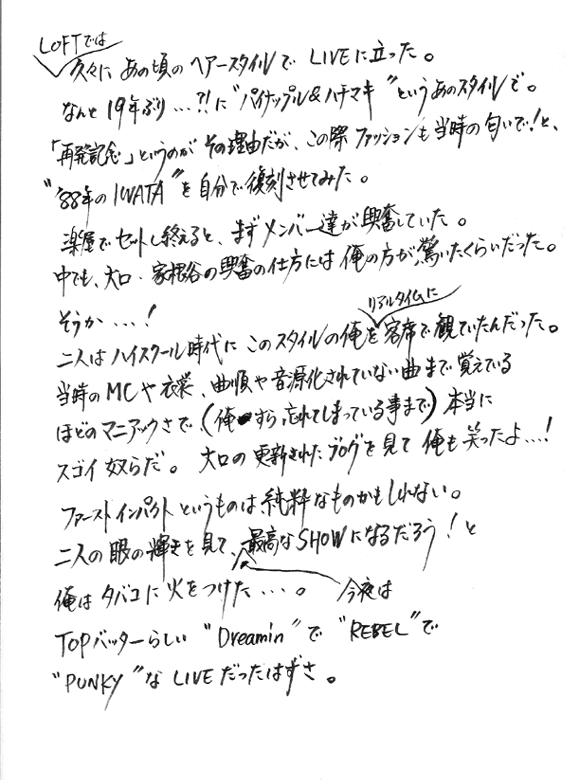 LOFTでは
久々に あの頃の ヘアースタイルで LIVEに立った。
なんと 19年ぶり…?!に "パイナップル&ハチマキ" というあのスタイルで。
「再発記念」というのが その理由だが、この際 ファッションも当時の匂いで!と、
"'88年の IWATA" を自分で復刻させてみた。
楽屋でセットし終えると、まずメンバー達が興奮していた。
中でも、大口・家根谷の興奮の仕方には 俺の方が驚いたくらいだった。
そうか….!
リアルタイムに
二人はハイスクール時代に このスタイルの俺を客席で観ていたんだった。
当時のMCや衣裳、曲順や音源化されていない曲まで覚えている
ほどのマニアックさで (俺すら忘れてしまっている事まで) 本当に
スゴイ奴らだ。 大口の更新されたブログを見て 俺も笑ったよ…!
ファーストインパクトというものは純粋なものかもしれない。
二人の眼の輝きを見て、最高なSHOWになるだろう!と
俺はタバコに火をつけた…。 今夜は
TOPバッターらしい "Dreamin" で "REBEL" で
"PUNKY" な LIVEだったはずさ。